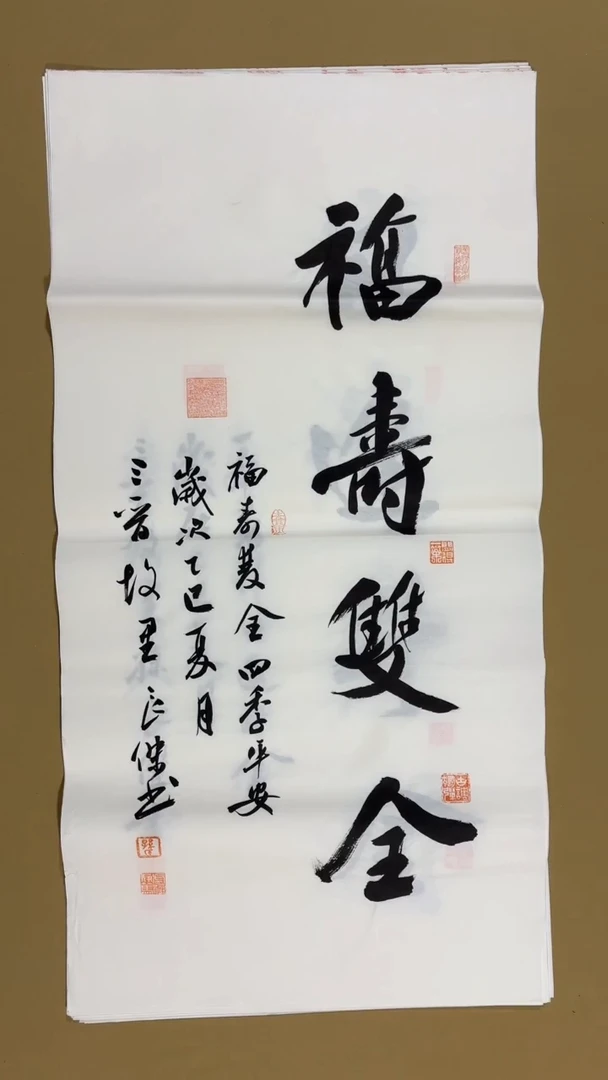 福壽雙全
福寿双全四季平安
歲次乙巳夏月
三晋故里良傑书